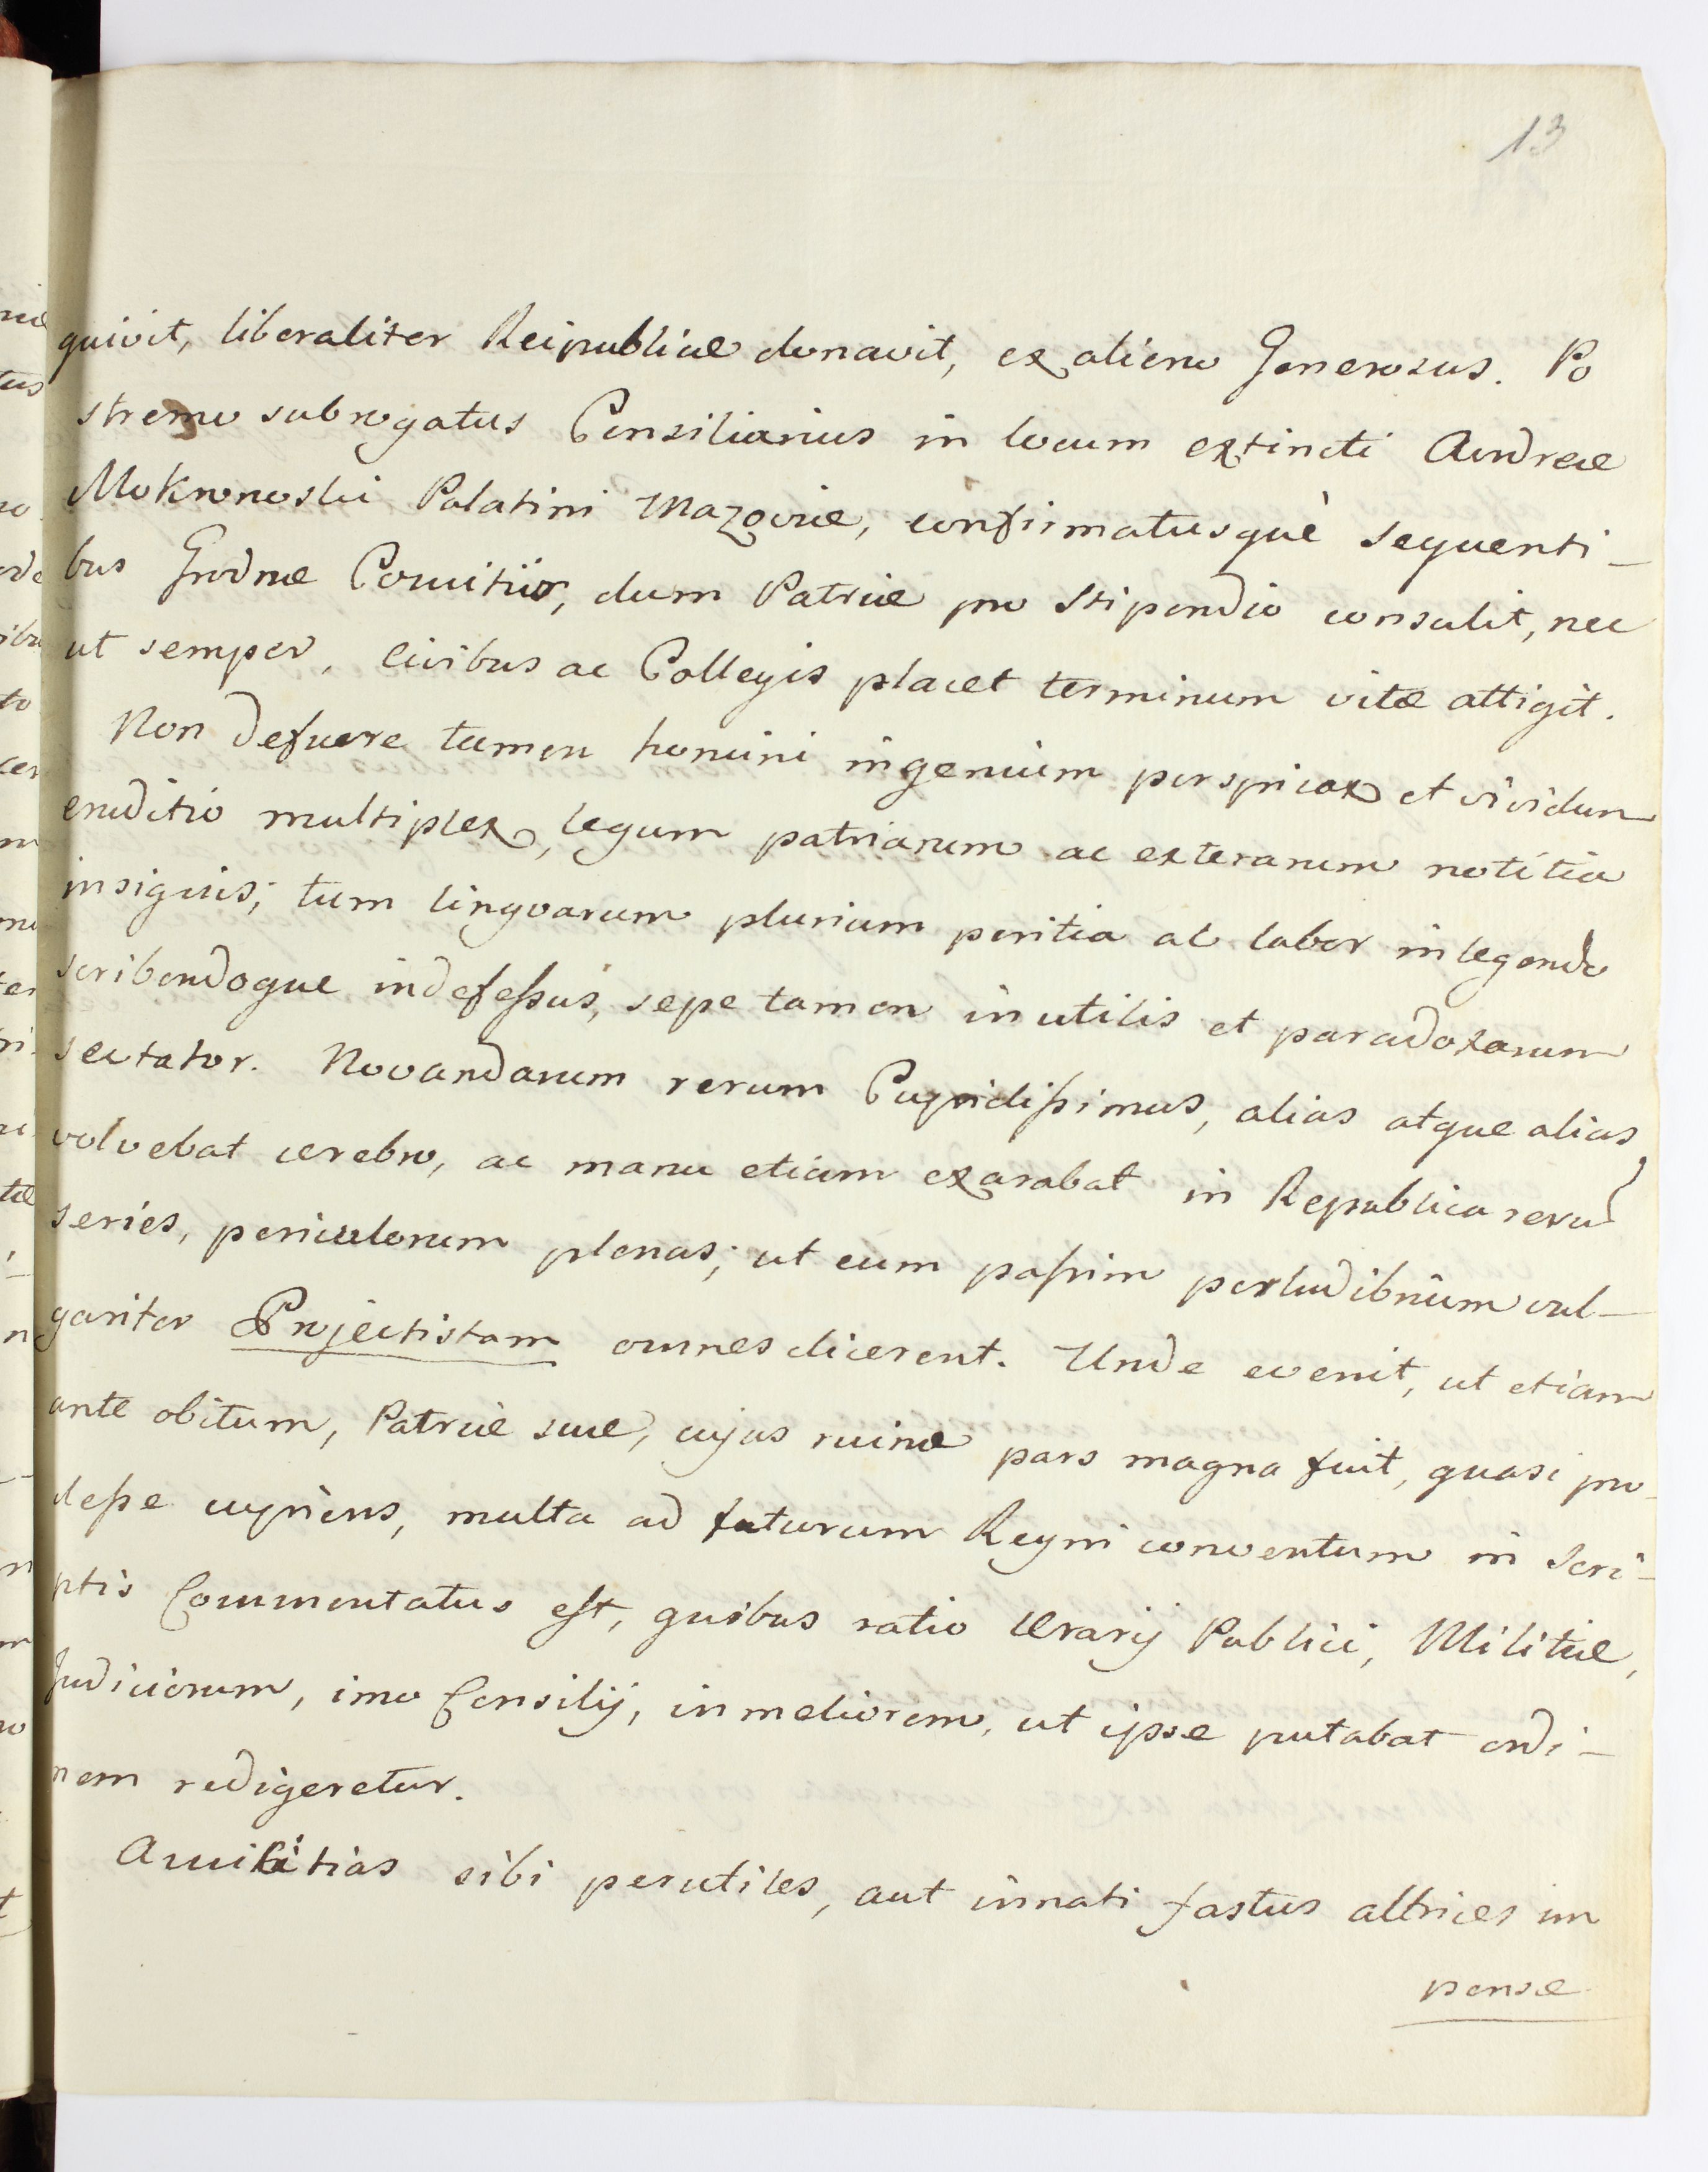 13
quivit, liberaliter Reipublicæ donavit, ex alieno Generosus. Po
stremo subrogatus Consiliarius in locum extincti Andreæ
Mokronoski Palatini Mazoviæ, confirmatusquè sequenti_
bus Grodnæ Comitiis, dum Patriæ pro stipendio consulit, nec
ut semper, civibus ac Collegis placet terminum vitæ attigit.
Non defuere tamen homini ingenium perspicax et vividum
eruditio multiplex, legum patriarum ac exterarum notitia
insignis; tum lingvarum plurium peritia ac labor in legendo
scribendoque indefessus, sepe tamen inutilis et paradoxarum
sectator. Novandarum rerum Cupidissimus, alias atque alias,
volvebat cerebro, ac manu etiam exarabat in Republica rerum
series, periculorum plenas; ut eum passim per ludibrium vul_
gariter Projectistam omnes dicerent. Unde evenit, ut etiam
ante obitum, Patriæ suæ, cujus ruinæ pars magna fuit, quasi pro_
desse cupiens, multa ad futurum Regni conventum in scri_
ptis Commentatus est, quibus ratio Ærarij Publici, Militiæ,
Judiciorum, imo Consilij, in meliorem, ut ipse putabat ordi_
nem redigeretur.
Amicitias sibi perutiles, aut innati fastus altrices im
pense